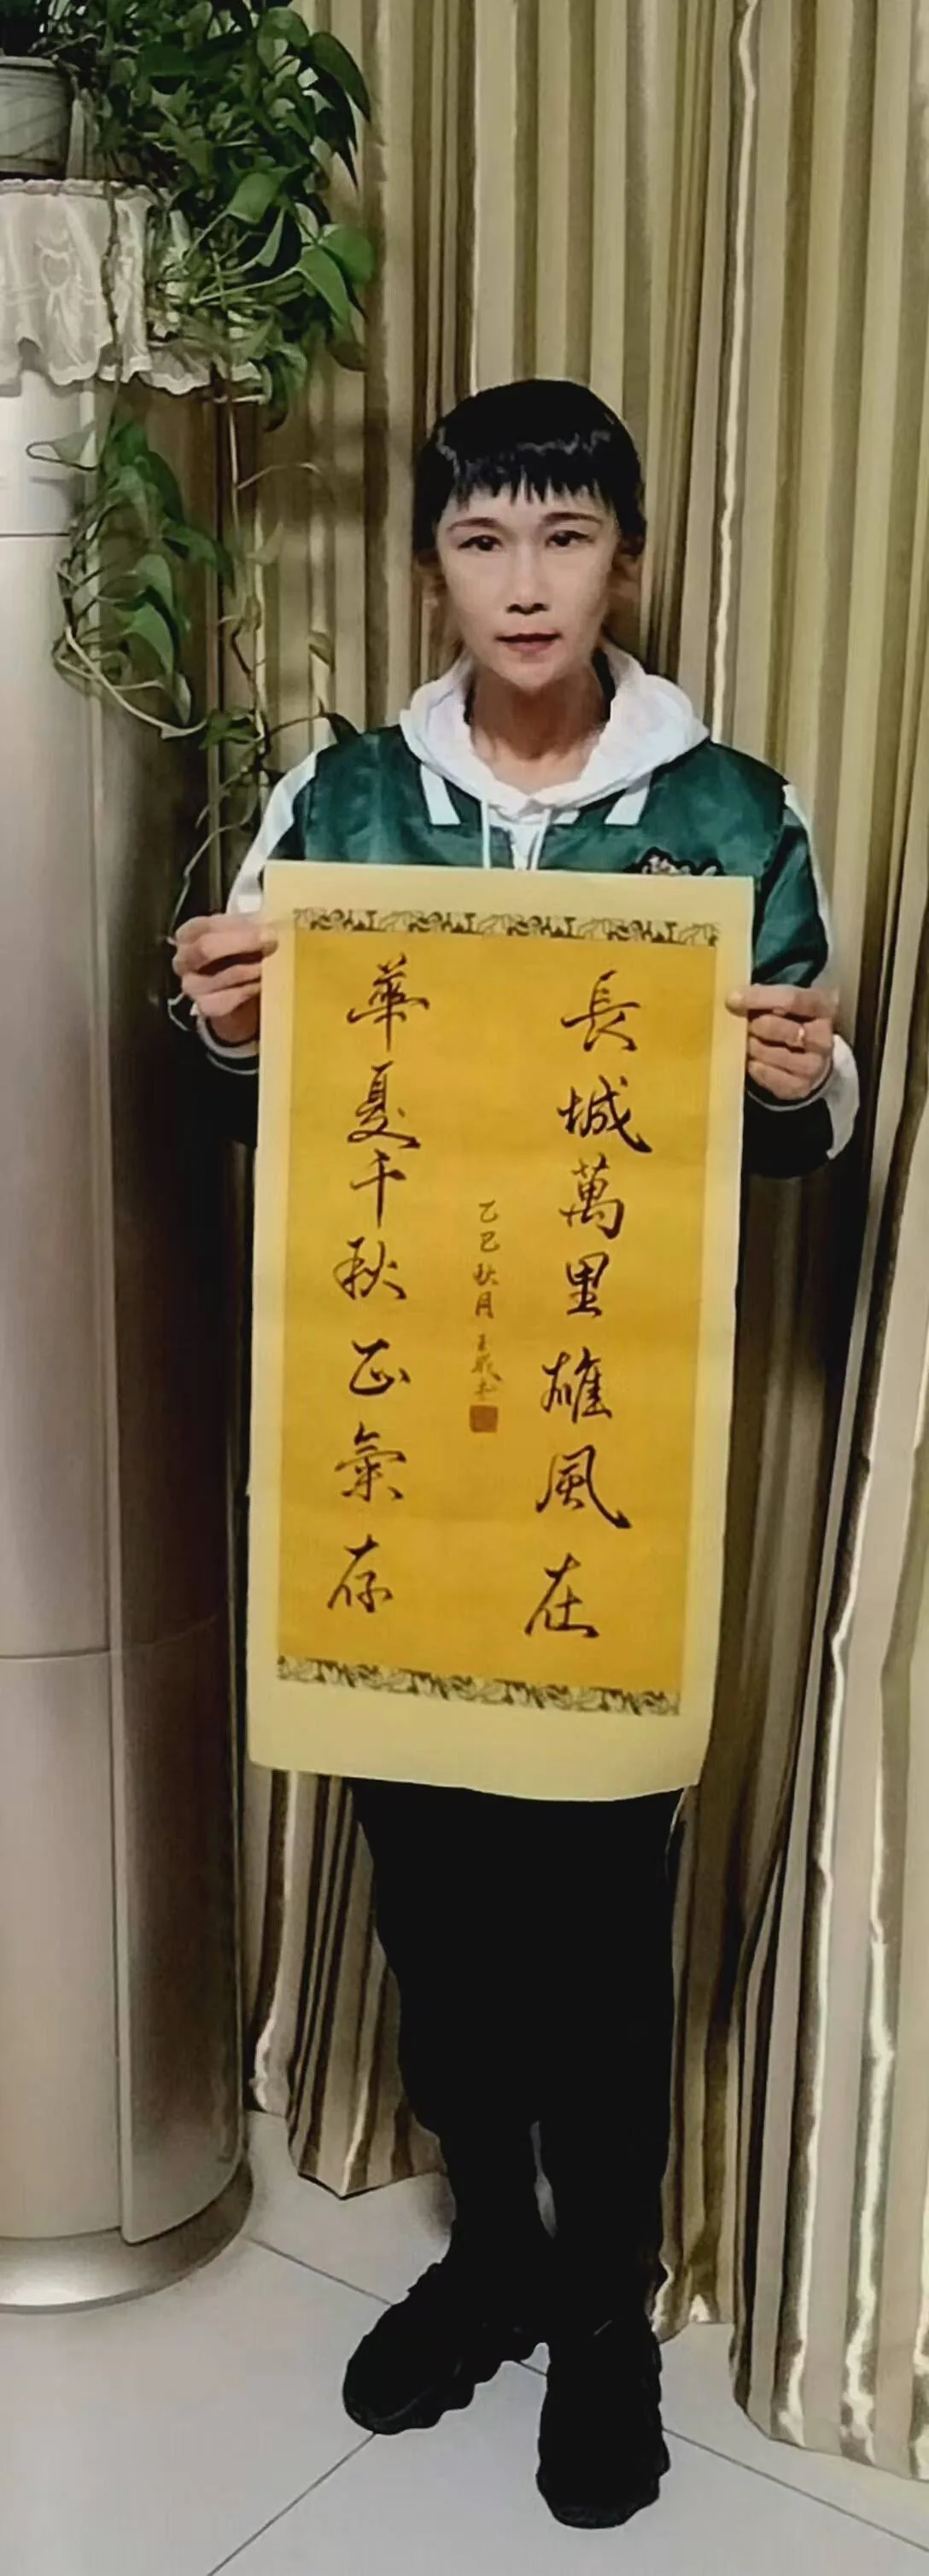 長城萬里雄風在
華夏千秋正氣存
乙巳秋月